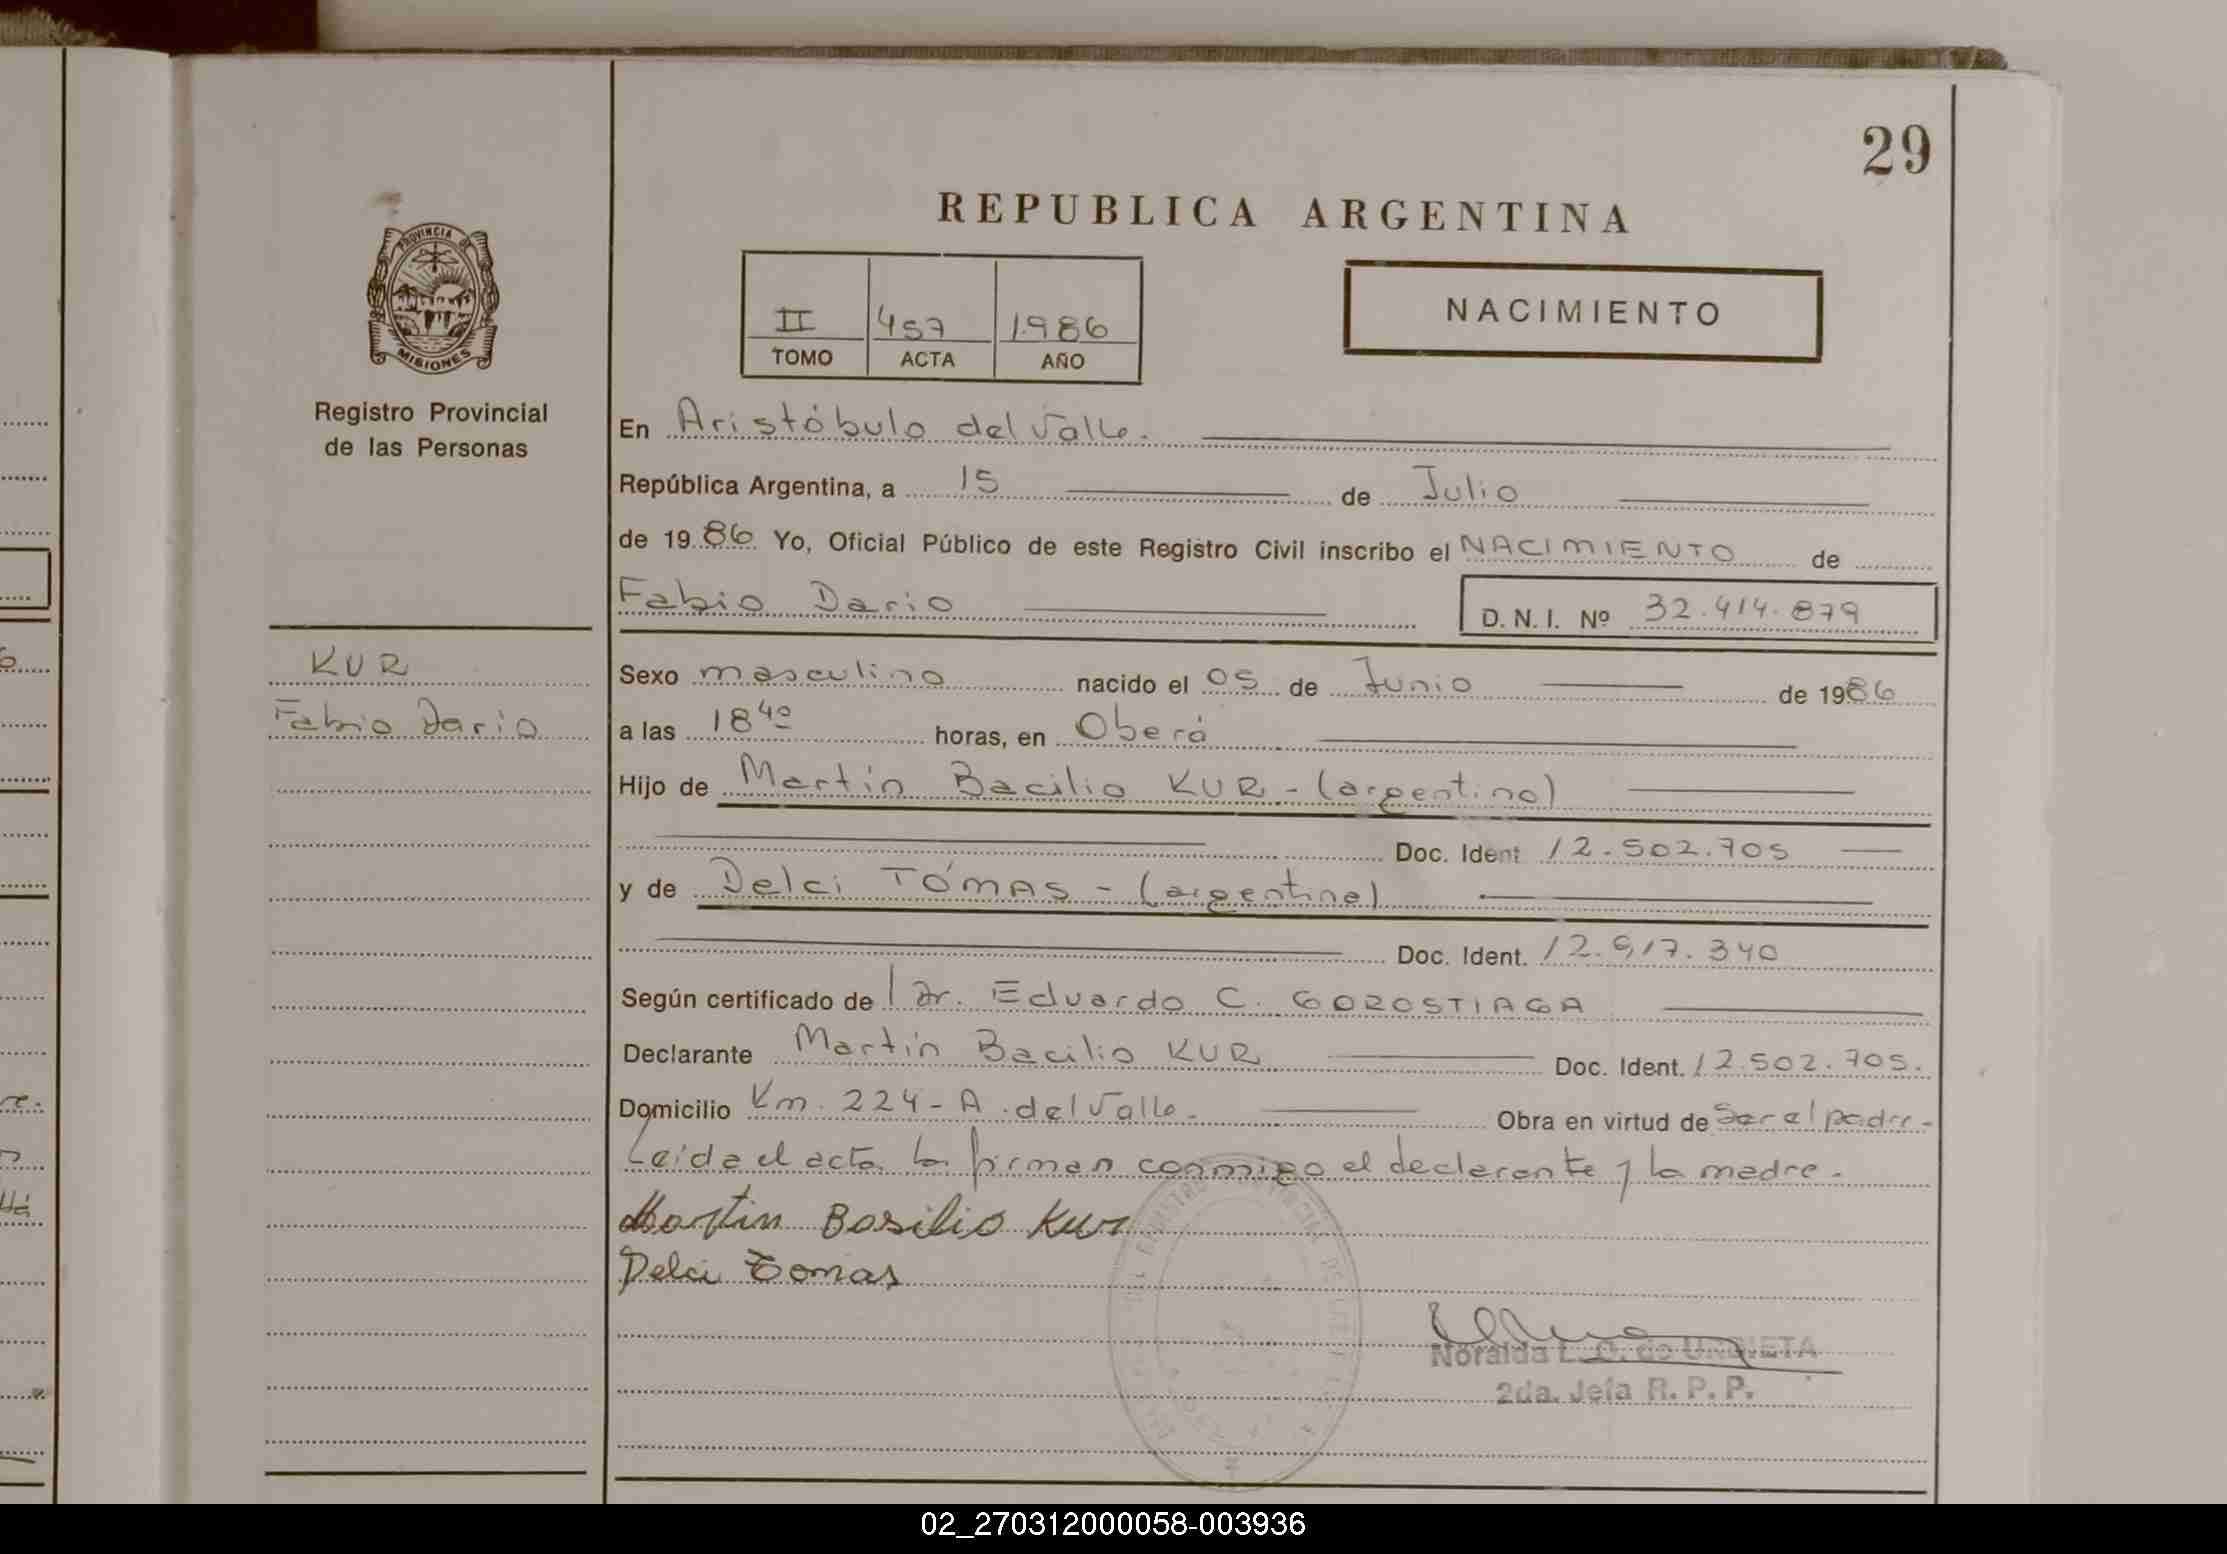 29
REPUBLICA ARGENTINA
PROVINCIA DE
MISIONES
Registro Provincial
de las Personas
II 457 1986
TOMO ACTA AÑO
NACIMIENTO
En Aristóbulo del Valle.
República Argentina, a 15 de Julio
de 1986 Yo, Oficial Público de este Registro Civil inscribo el NACIMIENTO de
Fabio Dario D. N. I. Nº 32.414.879
KUR
Fabio Dario
Sexo masculino nacido el 05 de Junio de 1986
a las 18 40 horas, en Oberá
Hijo de Martín Bacilio KUR - (argentino)
Doc. Ident 12.502.705
y de Delci TÓMAS - (argentina)
Doc. Ident. 12.917.340
Según certificado de Dr. Eduardo C. GOROSTIAGA
Declarante Martín Bacilio KUR Doc. Ident. 12.502.705.
Domicilio Km. 224 - A. del Valle. Obra en virtud de Ser el padre -
Leída el acta la firman conmigo el declarante y la madre.
Martin Basilio Kur
Delci Tomas
Noralda L. de URBIETA
2da. Jefa R. P. P.
02_270312000058-003936